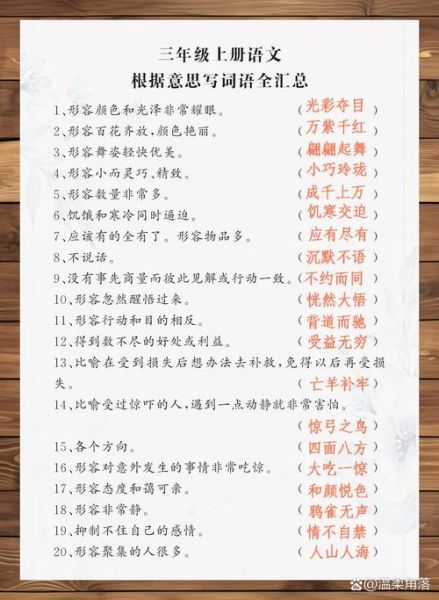 三年级上册语文
根据意思写词语全汇总
1、形容颜色和光泽非常耀眼。（光彩夺目）
2、形容百花齐放,颜色艳丽。（万紫千红）
3、形容舞姿轻快优美。（翩翩起舞）
4、形容小而灵巧、精致。（小巧玲珑）
5、形容数量非常多。（成千上万）
6、饥饿和寒冷同时逼迫。（饥寒交迫）
7、应该有的全有了。形容物品多。（应有尽有）
8、不说话。（沉默不语）
9、没有事先商量而彼此见解或行动一致。（不约而同）
10、形容忽然醒悟过来。（恍然大悟）
11、形容行动和目的相反。（背道而驰）
12、得到数不尽的好处或利益。（受益无穷）
13、比喻在受到损失后想办法去补救,免得以后再受损
失。（亡羊补牢）
14、比喻受过惊吓的人,遇到一点动静就非常害怕。
（惊弓之鸟）
15、各个方向。（四面八方）
16、形容对意外发生的事情非常吃惊。（大吃一惊）
17、形容态度和蔼可亲。（和颜悦色）
18、形容非常静。（鸦雀无声）
19、抑制不住自己的感情。（情不自禁）
20、形容聚集的人很多。（人山人海）
@温柔角落